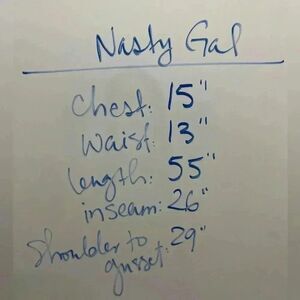 Nasty Gal
Chest: 15"
Waist: 13"
length: 55"
inseam: 26"
Shoulder to
gusset: 29"